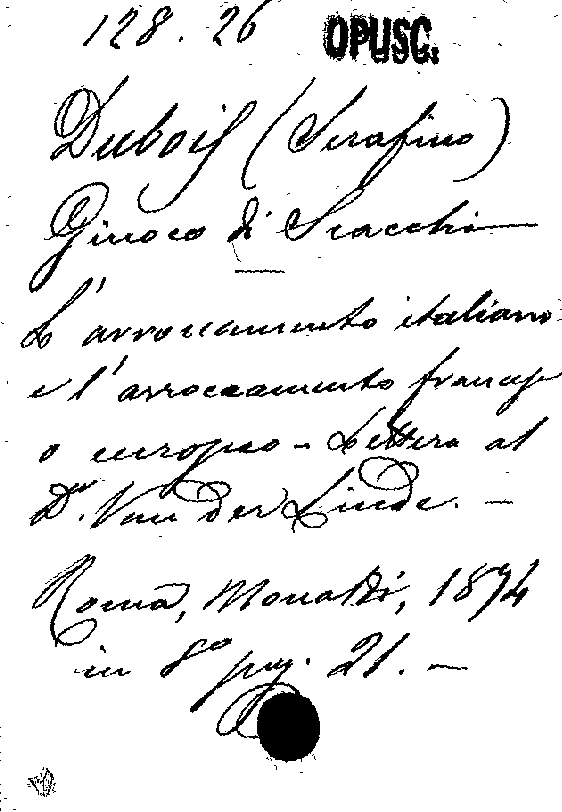 128.26 OPUSC.
Dubois (Serafino)
Giuoco di Scacchi
L'arroccamento italiano
e l'arroccamento francese
o europeo - Lettera al
Dr. Van der Linde. -
Roma, Monaldi, 1874
in 8° pag. 21. -